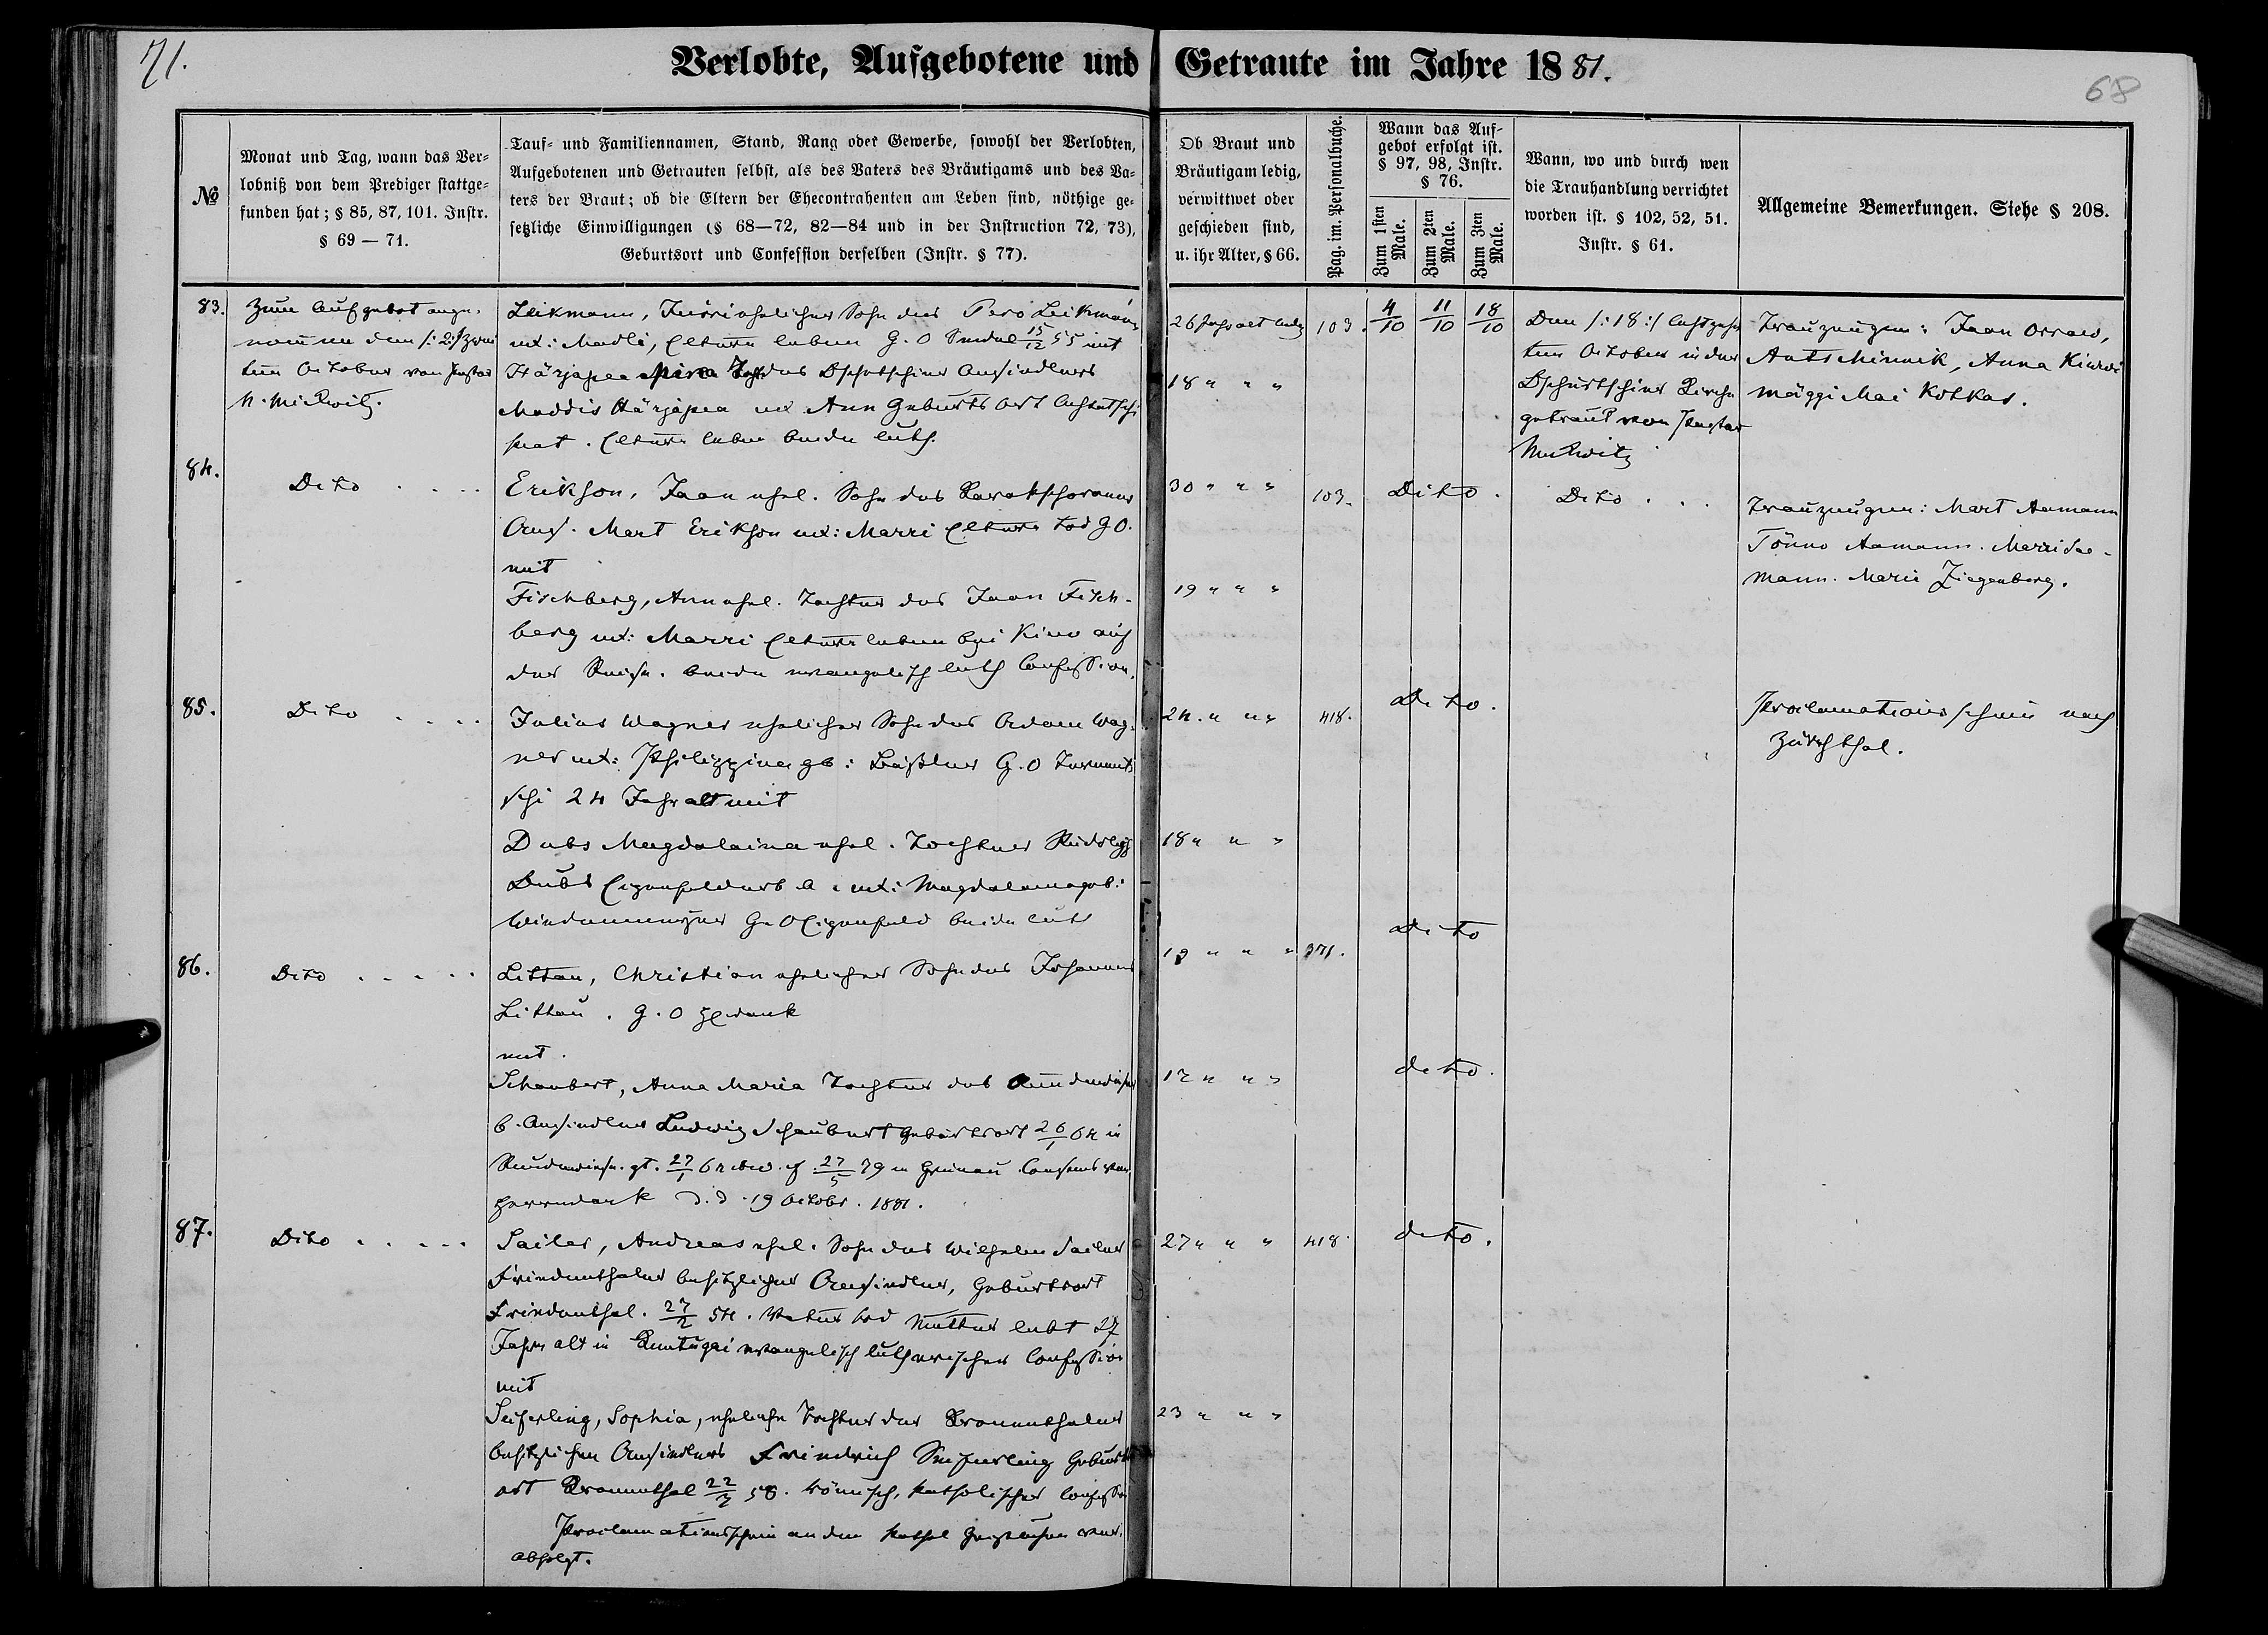 71.
Verlobte, Aufgebotene und Getraute im Jahre 1881.
68
№
Monat und Tag, wann das Ver-
lobniß von dem Prediger stattge-
funden hat; § 85, 87, 101. Instr.
§ 69 — 71.
Tauf- und Familiennamen, Stand, Rang oder Gewerbe, sowohl der Verlobten,
Aufgebotenen und Getrauten selbst, als des Vaters des Bräutigams und des Va-
ters der Braut; ob die Eltern der Ehecontrahenten am Leben sind, nöthige ge-
setzliche Einwilligungen (§ 68—72, 82—84 und in der Instruction 72, 73),
Geburtsort und Confession derselben (Instr. § 77).
Ob Braut und
Bräutigam ledig,
verwittwet oder
geschieden sind,
u. ihr Alter, § 66.
Pag. im. Personalbuche.
Wann das Auf-
gebot erfolgt ist.
§ 97, 98, Instr.
§ 76.
Zum 1sten Male.
Zum 2ten Male.
Zum 3ten Male.
Wann, wo und durch wen
die Trauhandlung verrichtet
worden ist. § 102, 52, 51.
Instr. § 61.
Allgemeine Bemerkungen. Siehe § 208.
83.
Zum Aufgebot ange-
nommen den /: 2 :/ zwei
ten October von Pastor
N. Mickwitz.
Leikmann, Jürri ehelicher Sohn des Pero Leikmann
ux: Madli, Eltern leben G. O 15/12 55 mit
Härjapea Miina des Dschotschiner Ansiedlers
Maddis Härjapea ux Ann Geburts Ort
Eltern leben beide luth.
26 Jahr alt ledig
18 " " "
103.
4/10 11/10 18/10
Den /: 18 :/ achtzehn
ten October in der
Kirche
getraut von Pastor
Mickwitz
Trauzeugen: Jaan Orraw,
Ants Minnik, Anna
mäggi Mai Kotkas.
84.
Dito . . . .
Erikson, Jaan ehel. Sohn des
Ans. Mart Erikson ux: Marri Eltern tod G O.
mit
Fischberg, Ann ehel. Tochter des Jaan Fisch-
berg ux: Marri Eltern leben bei Kiew auf
der Reise. beide evangelisch luth Confession.
30 " " "
19 " " "
103.
Dito.
Dito . . .
Trauzeugen: Mart Aamann
Tönno Aamann. Marri Saa-
mann. Marie Ziegenberg.
85.
Dito . . . .
Julius Wagner ehelicher Sohn des Adam Wag-
ner ux: Philippina gb: G. O
schi 24 Jahr alt mit
Dubs Magdalaina ehel. Tochter Rudolph
Dubs Eigenfelder ux: Magdalena geb:
G. O Eigenfeld beide luth
24. " " "
18 " " "
418.
Dito.
Proclamations schein nach
Zürichthal.
86.
Dito . . . . .
Littau, Christian ehelicher Sohn des Johannes
Littau. G. O
mit.
Schaubert, Anna Maria Tochter des
b. Ansiedlers Ludwig Schaubert Geburtsort 26/1 64 in
gt. 27/1 64 27/5 79 in Grünau Consens von
d. d. 19 Octobr. 1881.
19 " " "
17 " " "
371.
Dito
dito.
87.
Dito . . . . .
Sailer, Andreas ehel. Sohn des Wilhelm Sailer
Friedenthaler besitzlicher Ansiedler, Geburtsort
Friedenthal. 27/2 54. Vater tod Mutter lebt 27
Jahr alt in evangelisch lutherischer Confession
mit
Seiferling, Sophia, eheliche Tochter des Kronenthaler
besitzlichen Ansiedlers Friedrich Seiferling Geburts
ort Kronenthal 22/2 58. römisch, katholischer Confession
Proclamationsschein an den kathol Geistlichen ver-
abfolgt.
27 " " "
23 " " "
418.
dito.